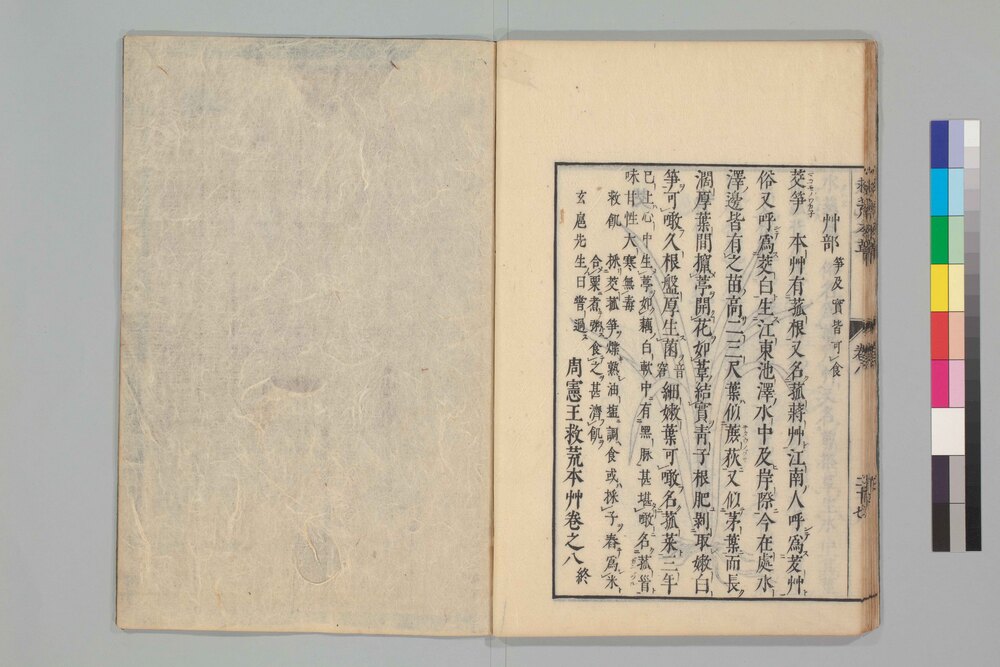 艸部 笋及實皆可食
茭笋 本艸有菰根又名菰蔣艸江南人呼爲茭艸
俗又呼爲茭白生江東池澤水中及岸際今在處水
澤邊皆有之苗高二三尺葉似蔗荻又似茅葉而長
濶厚葉間攛葶開花如葦結實青子根肥剝取嫩白
笋可啖久根盤厚生菌 音窘 細嫩葉可啖名菰菜三年
已上心中生葶如藕白軟中有黑脉甚堪啖名菰首
味甘性大寒無毒
救飢 採茭菰笋煠熟油塩調食或採子舂爲米
合粟煮粥食之甚濟飢
玄扈先生曰嘗過
周憲王救荒本艸卷之八 終
卷八
二十七